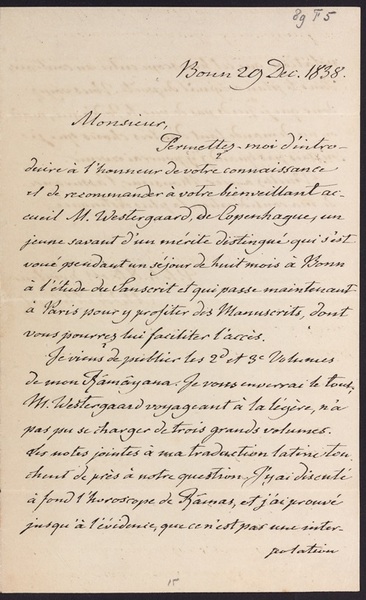 89 F 5
Bonn 29 Dec. 1838.
Monsieur,
Permettez-moi d'intro-
duire à l'honneur de votre connaissance
et de recommander à votre bienveillant ac-
cueil M. Westergaard, de Copenhague, un
jeune savant d'un mérite distingué qui s'est
voué pendant un séjour de huit mois à Bonn
à l'étude du Sanscrit et qui passe maintenant
à Paris pour y profiter des Manuscrits, dont
vous pourrez lui faciliter l'accès.
Je viens de publier les 2d et 3e Volumes
de mon Râmâyana. Je vous enverrai le tout,
M. Westergaard voyageant à la légère, n'a
pas pu se charger de trois grands volumes.
Les notes jointes à ma traduction latine tou-
chent de près à notre question, j'y ai discuté
à fond l'horoscope de Râmas, et j'ai prouvé
jusqu'à l'évidence, que ce n'est pas une inter-
polation
15